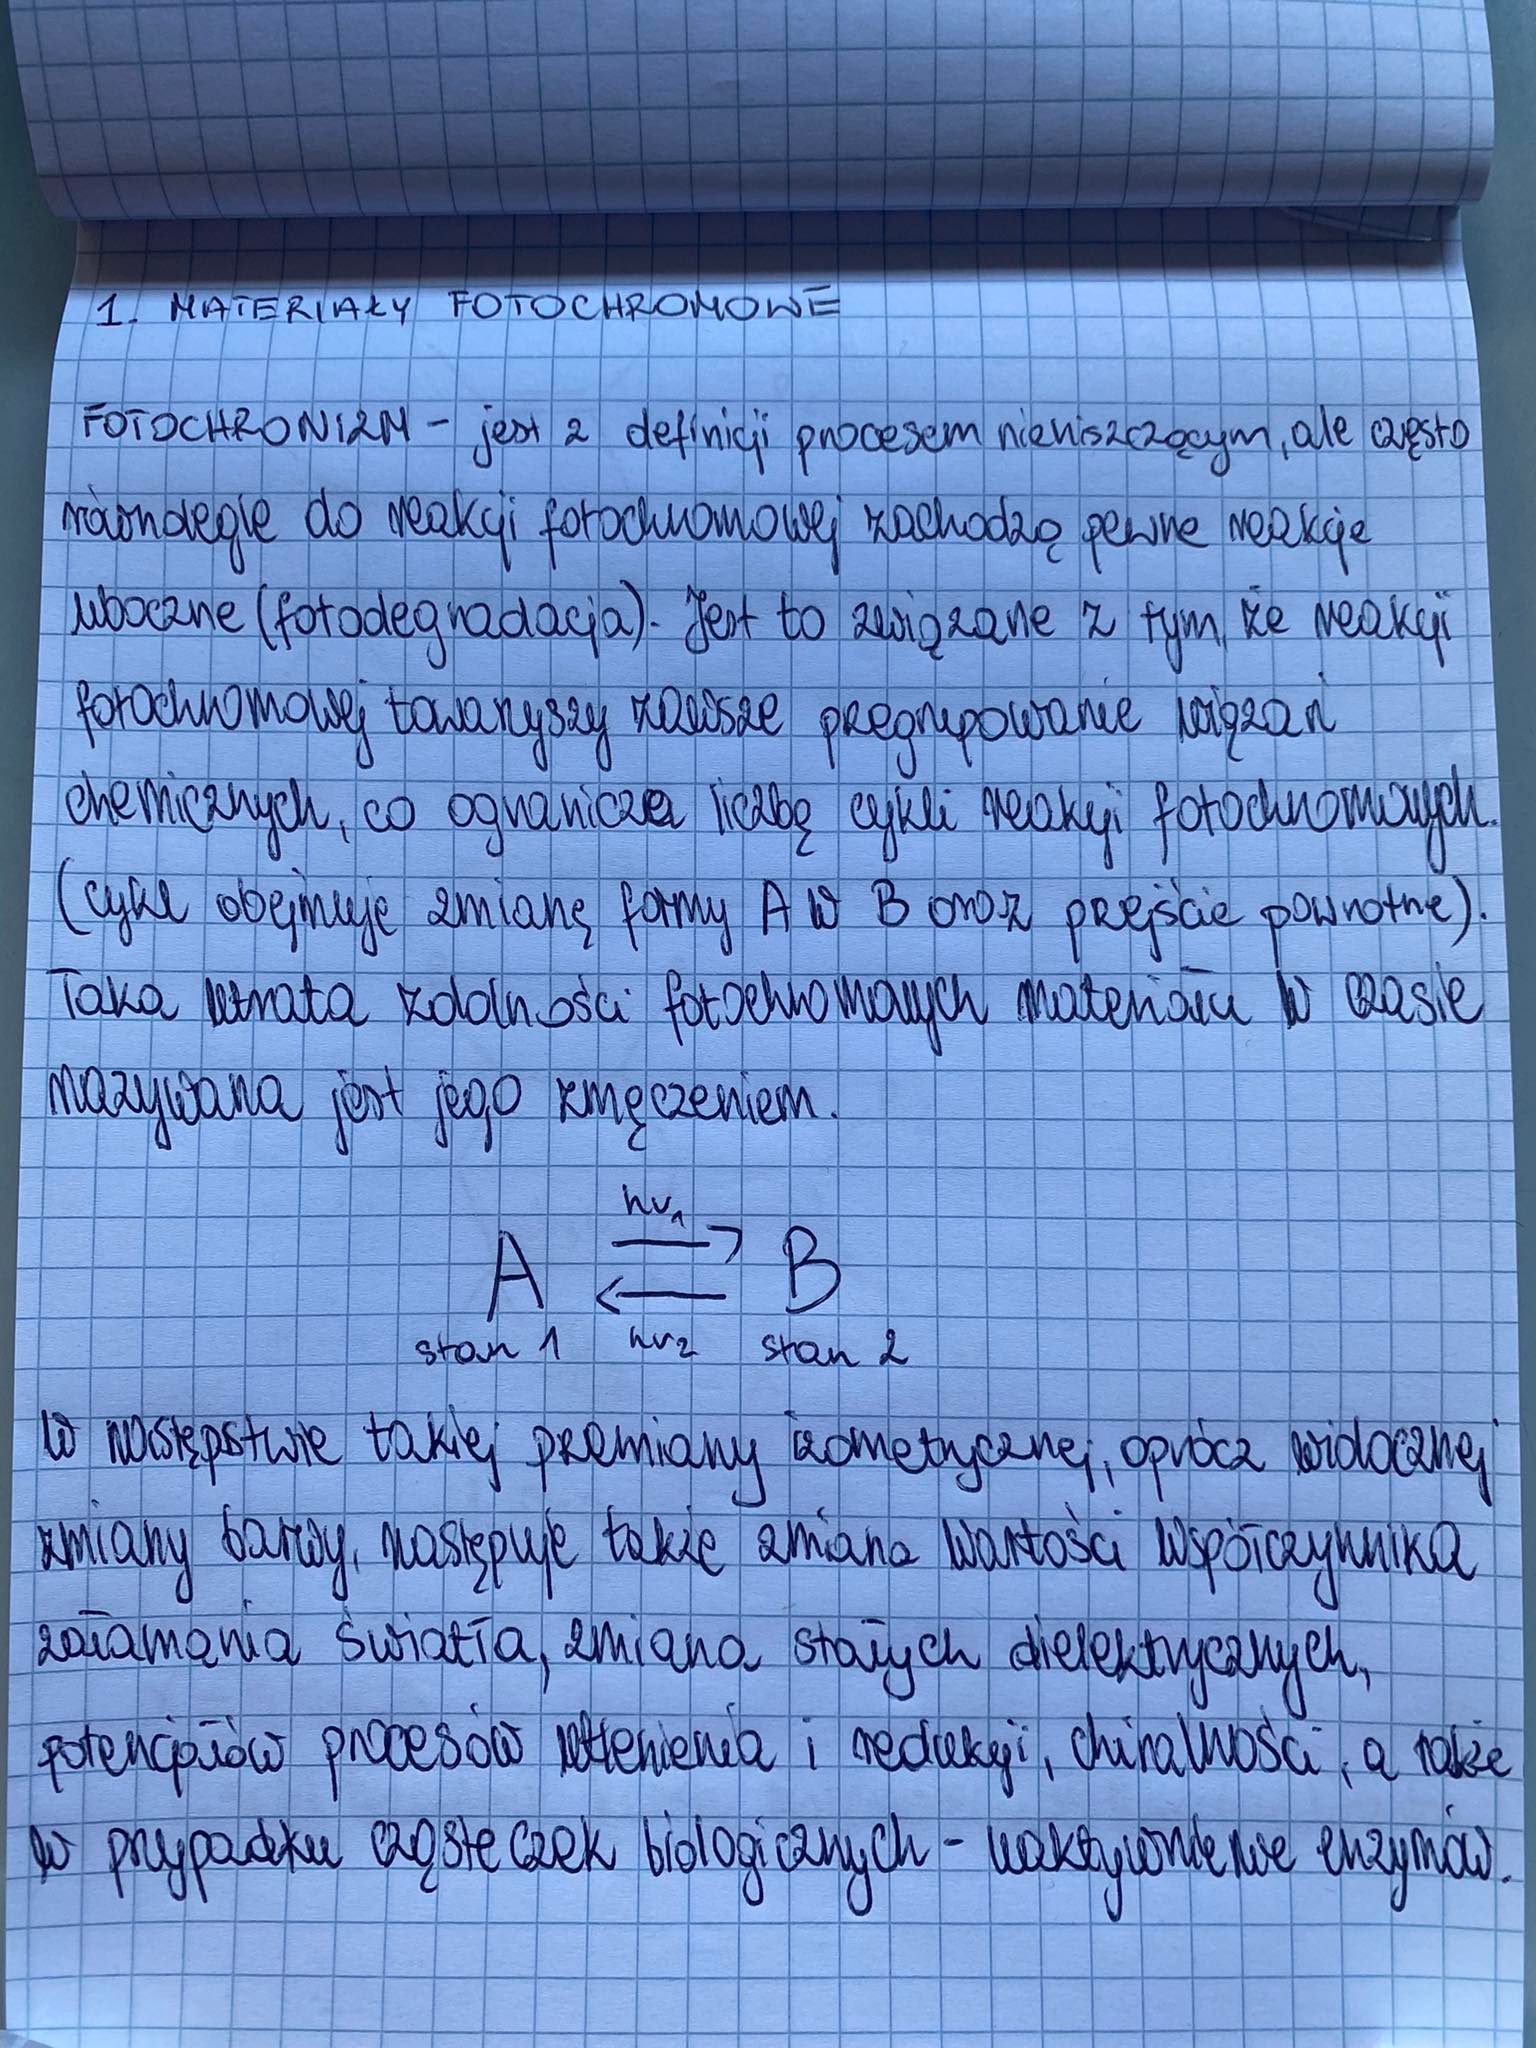 1. MATERIAŁY FOTOCHROMOWE
FOTOCHROMIZM - jest z definicji procesem nieniszczącym, ale często
równolegle do reakcji fotochromowej zachodzą pewne reakcje
uboczne (fotodegradacja). Jest to związane z tym, że reakcji
fotochromowej towarzyszy zawsze pregrupowanie wiązań
chemicznych, co ogranicza liczbę cykli reakcji fotochromowych.
(cykl obejmuje zmianę formy A w B oraz prejście powrotne).
Taka utrata zdolności fotochromowych materiału w czasie
nazywana jest jego zmęczeniem.
hν₁
A ⇄ B
stan 1 hν₂ stan 2
W następstwie takiej premiany izometrycznej, oprócz widocznej
zmiany barwy, następuje także zmiana wartości współczynnika
załamania światła, zmiana stałych dielektrycznych,
potencjałów procesów utlenienia i redukcji, chiralności, a także
w przypadku cząsteczek biologicznych - uaktywnienie enzymów.